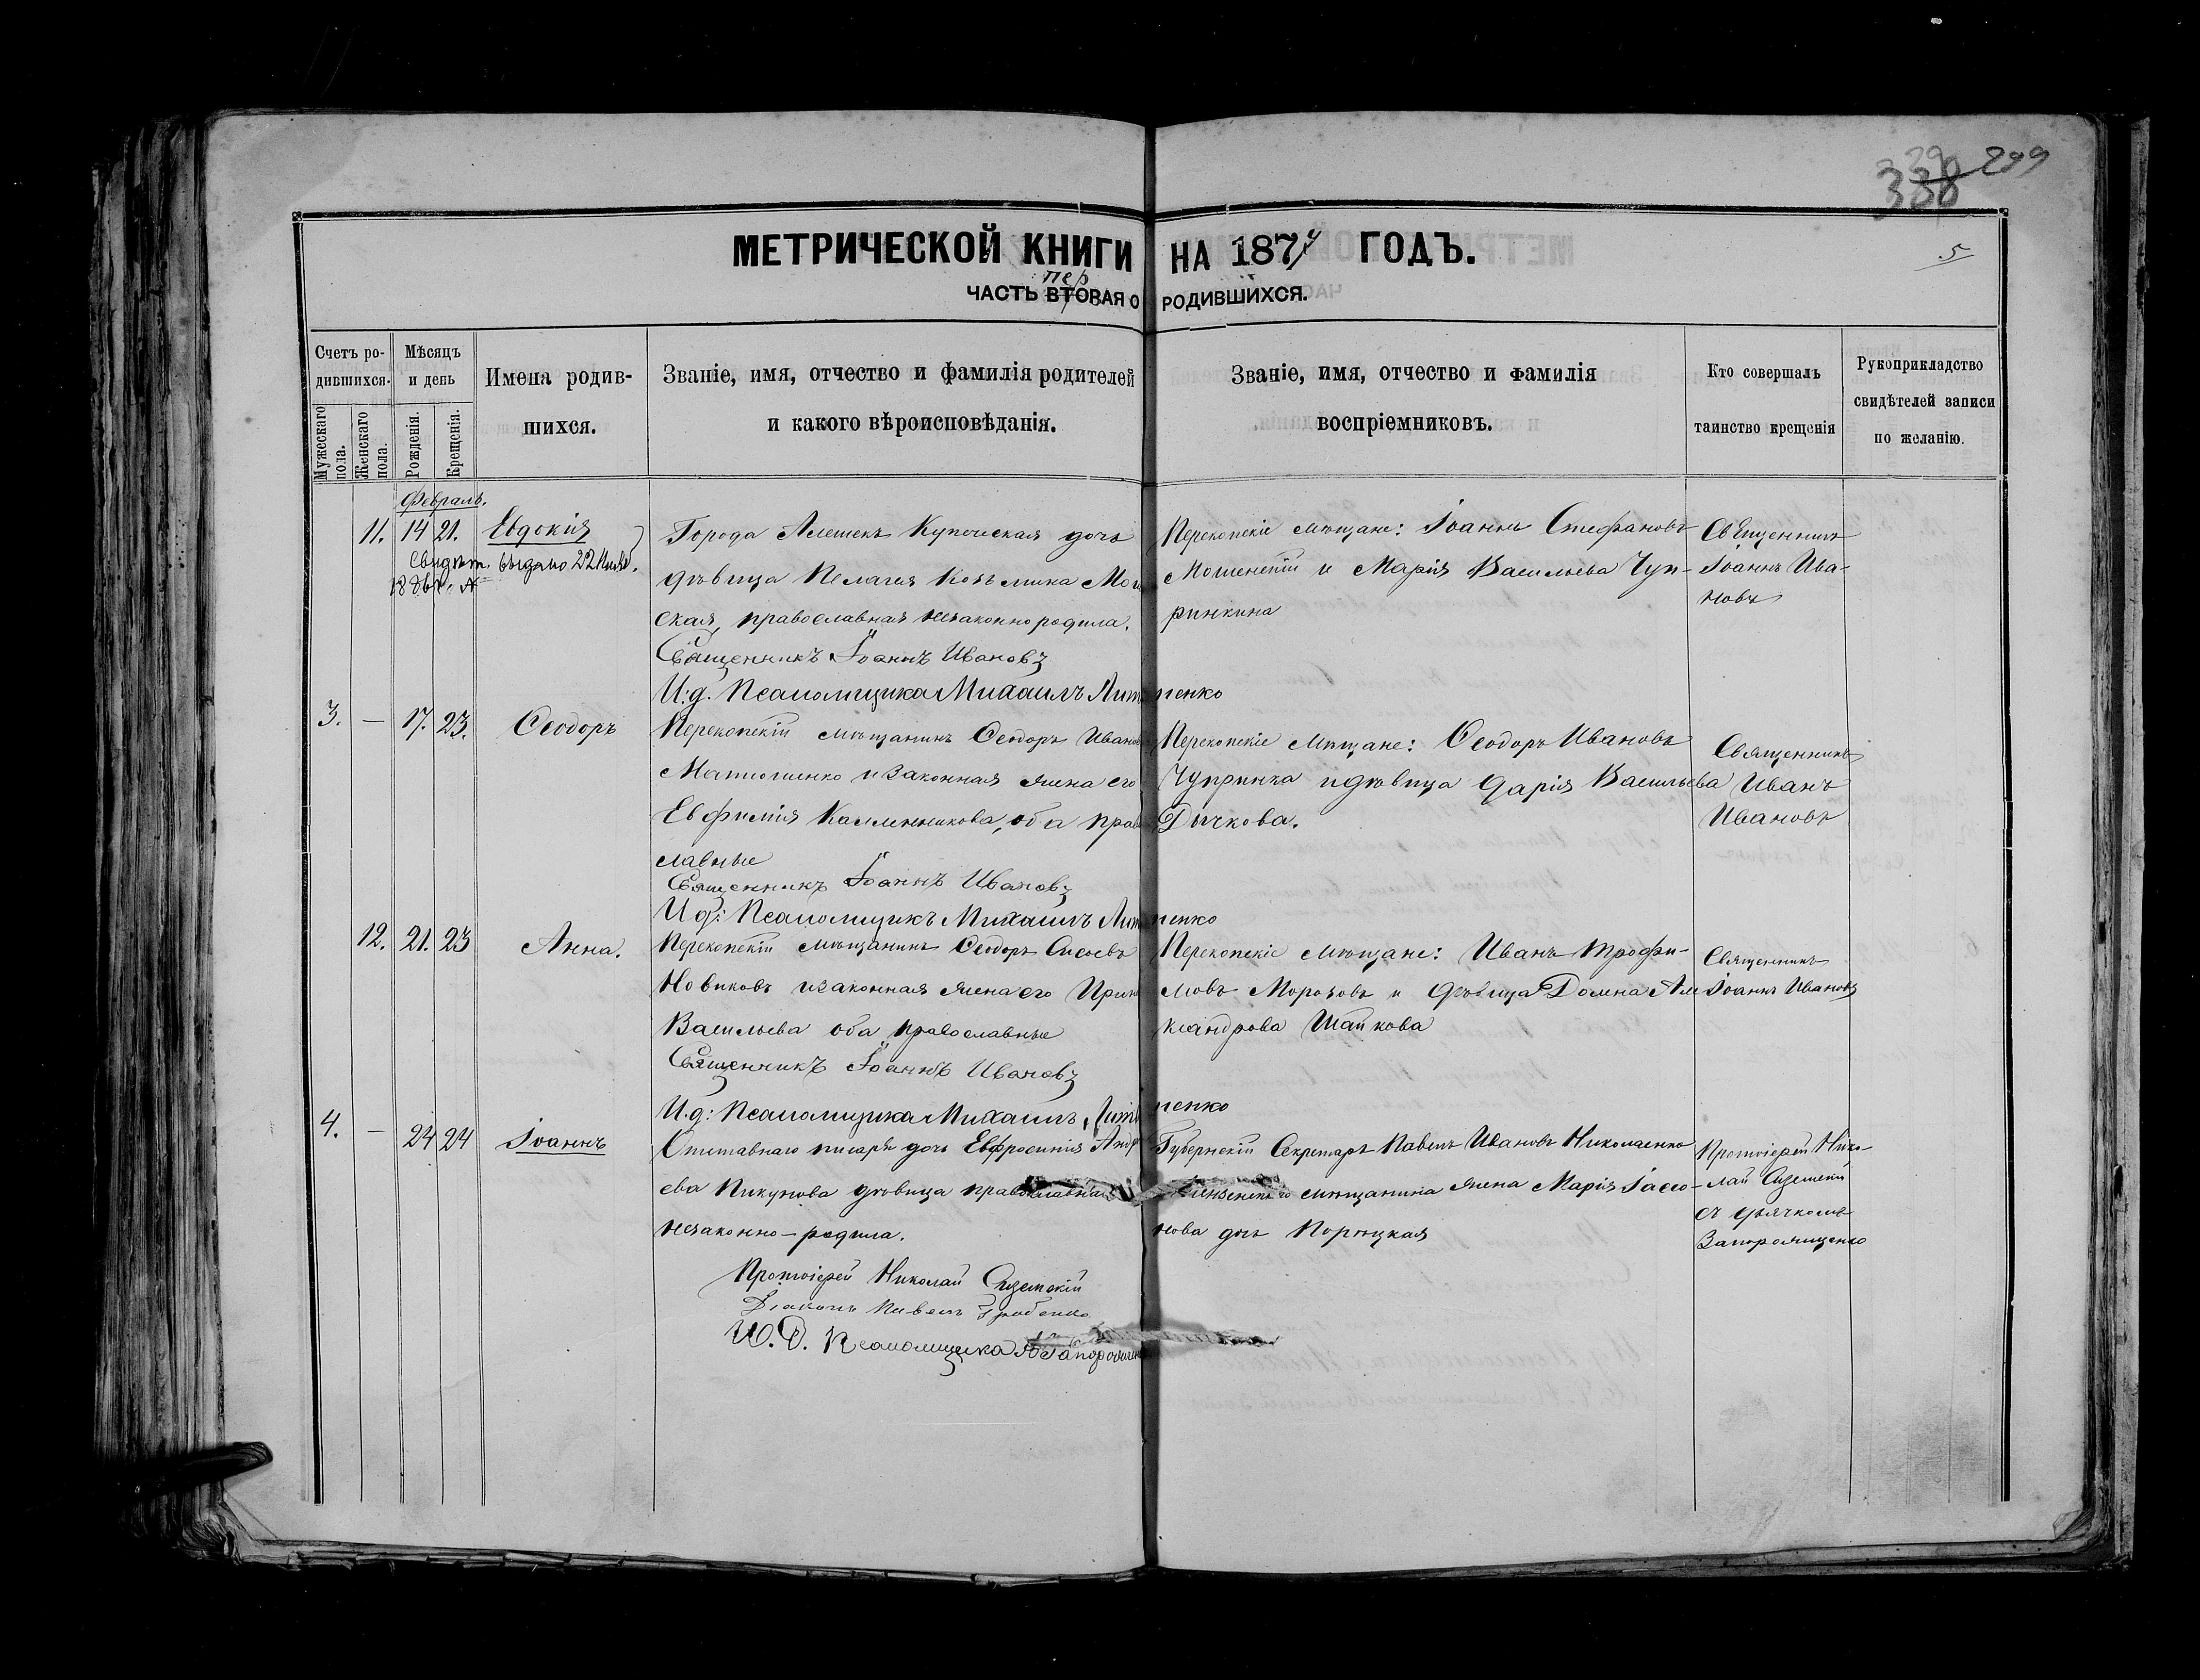 339
338 299
МЕТРИЧЕСКОЙ КНИГИ НА 1874 ГОДЪ.
5
пер
ЧАСТЬ ВТОРАЯ О РОДИВШИХСЯ.
Счетъ ро-
дившихся.
Мужескаго
пола.
Женскаго
пола.
Мѣсяцъ
и день
Рожденія.
Крещенія.
Имена родив-
шихся.
Званіе, имя, отчество и фамилія родителей
и какого вѣроисповѣданія.
Званіе, имя, отчество и фамилія
воспріемниковъ.
Кто совершалъ
таинство крещенія
Рукоприкладство
свидѣтелей записи
по желанію.
Февраль.
11. 14 21. Евдокія
Свидѣт. выдано 22
Города Алешекъ Купеческая дочь
дѣвица Пелагея Козьмина Мош
ская, православная незаконно родила.
Священникъ Іоаннъ Ивановъ
И.д. Псаломщика Михаилъ Лит пенко
Перекопскіе мѣщане: Іоаннъ Стефановъ
Мошенскій и Марія Васильева Чуп-
ринкина
Священникъ
Іоаннъ Ива-
новъ
3. — 17. 23. Ѳеодоръ
Перекопскій мѣщанинъ Ѳеодоръ Иванов
Матюшенко и законная жена его
Евфимія Калинникова, оба право
славные
Священникъ Іоаннъ Ивановъ
И.д: Псаломщикъ Михаилъ Лит пенко
Перекопскіе мѣщане: Ѳеодоръ Ивановъ
Чупринка и дѣвица Дарія Васильева
Дычкова.
Священникъ
Иванъ
Ивановъ
12. 21. 23 Анна.
Перекопскій мѣщанинъ Ѳеодоръ Сисоевъ
Новиковъ и законная жена его Ирин
Васильева оба православные
Священникъ Іоаннъ Ивановъ
И.д: Псаломщика Михаилъ Лит пенко
Перекопскіе мѣщане: Иванъ Трофи-
мовъ Морозовъ и дѣвица Домна Але
ксандрова Шайкова
Священникъ
Іоаннъ Ивановъ
4. — 24 24 Іоаннъ
Отставнаго писаря дочь Евфросинія Андр
ева Пикунова дѣвица православная
незаконно-родила.
Протоіерей Николай Сиземскій
Діаконъ Павелъ
И.Д. Псаломщика
Губернскій Секретарь Павелъ Ивановъ Николаенко
мѣщанина жена Марія Іасо-
нова дочь Порицкая
Протоіерей Нико-
лай Сиземскій
съ дьячкомъ
Запорожченко